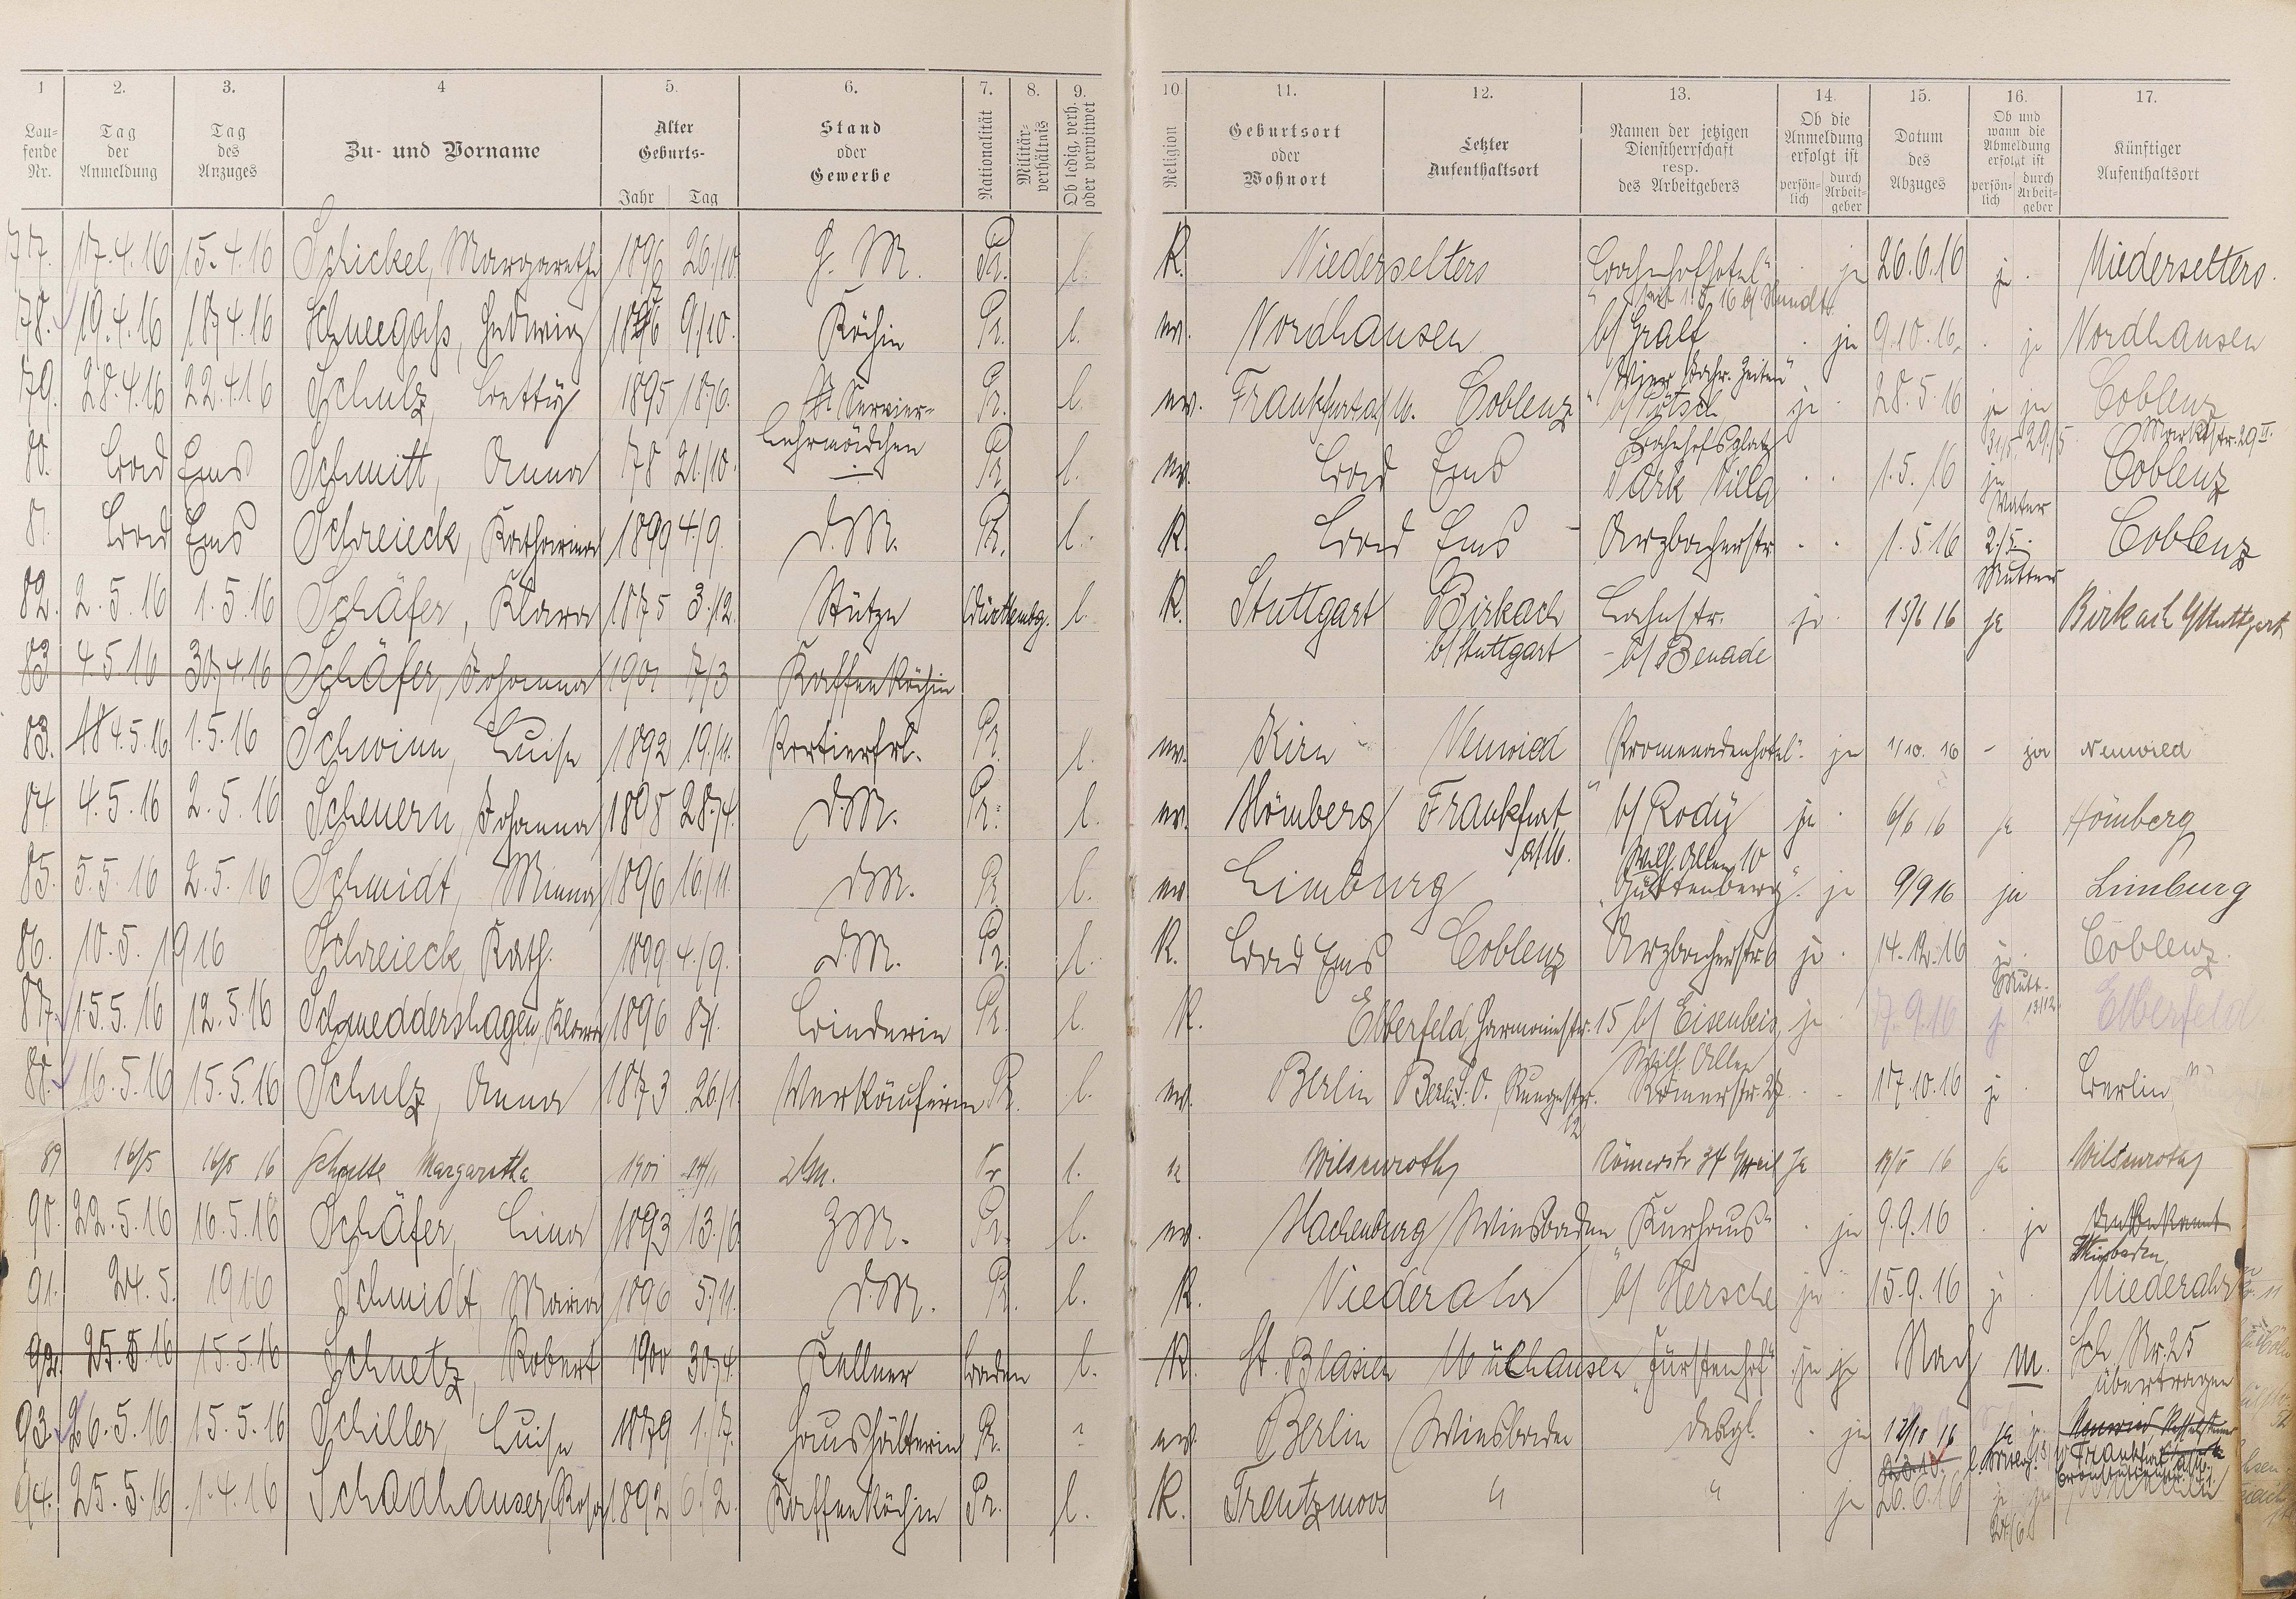 1 2. 3. 4 5. 6. 7. 8. 9. 10. 11. 12. 13. 14. 15. 16. 17.
Lau-fende Nr. Tag der Anmeldung Tag des Anzuges Zu- und Vorname Alter Geburts- Jahr Tag Stand oder Gewerbe Nationalität Militär-verhältnis Ob ledig, verh. oder verwitwet
Religion Geburtsort oder Wohnort Letzter Aufenthaltsort Namen der jetzigen Dienstherrschaft resp. des Arbeitgebers Ob die Anmeldung erfolgt ist persön-lich durch Arbeit-geber Datum des Abzuges Ob und wann die Abmeldung erfolgt ist persön-lich durch Arbeit-geber Künftiger Aufenthaltsort
77. 17.4.16 15.4.16 Schickel, Margarethe 1896 26./10. H. M. Pr. l. K. Niederselters "Bahnhofhotel" ja 26.6.16 ja Niederselters.
78. 19.4.16 18.4.16 Schneegaß, Hedwig 9./10. Köchin Pr. l. ev. Nordhausen b/ Graef ja 9.10.16. ja Nordhausen
79. 28.4.16 22.4.16 Schulz, Betty 1895 18./6. Servier-lehrmädchen Pr. l. ev. Frankfurt a/M. Coblenz "Vier Jahr. Zeiten" ja 28.5.16 ja ja 31/5. 29./5. Coblenz Marktstr. 29 II.
80. Bad Ems Schmitt, Anna 78 21./10. Pr. l. ev. Bad Ems Bahnhofsplatz Park Villa 1.5.16 ja Vater Coblenz
81. Bad Ems Schreieck, Katharina 1899 4./9. D.M. Pr. l. K. Bad Ems Arzbacherstr. 1.5.16 2./5. Mutter Coblenz
82. 2.5.16 1.5.16 Schäfer, Klara 1875 3./12. Stütze Württembg. l. K. Stuttgart Birkach b/ Stuttgart Lahnstr. b/ Benade ja 15/6 16 ja Birkach b/Stuttgart
83. 4.5.16 30.4.16 Schäfer, Johanna 1901 7/3 Kaffeeköchin
83. 4.5.16. 1.5.16 Schwinn, Luise 1892 19./11. Portierfrl. Pr. l. ev. Kirn Neuwied Promenadenhotel". ja 1/10. 16 - ja Neuwied
84. 4.5.16 2.5.16 Scheuern, Johanna 1898 28./4. D.M. Pr. l. ev. Hömberg Frankfurt a/M. b/ Rody Wilh. Allee 10 ja 6/6 16 ja Hömberg
85. 5.5.16 2.5.16 Schmidt, Minna 1896 16./11. D.M. Pr. l. ev. Limburg "Guttenberg". ja 9/9 16 ja Limburg
86. 10.5.1916 Schreieck, Kath. 1899 4./9. D.M. Pr. l. K. Bad Ems Coblenz Arzbacherstr. 6 ja 14.12.16 ja Mutt. 13/12. Coblenz.
87. 15.5.16 12.5.16 Schmeddershagen, Klara 1896 8/1. Binderin Pr. l. K. Elberfeld, Harmoniestr. 15 b/ Eisenbeis, Wilh. Allee ja 7.9.16 ja Elberfeld
88. 16.5.16 15.5.16 Schulz, Anna 1873 26./1. Verkäuferin Pr. l. ev. Berlin Berlin S.O. Rungestr. 12 Römerstr. 27 17.10.16 ja Berlin
89 16/5 16/5 16 Schulte Margaretha 1901 Pr l. K Wilsenroth Römerstr 34 ja 19/5 16 ja Wilsenroth
90. 22.5.16 16.5.16 Schäfer, Lina 1893 13./6 Z.M. Pr. l. ev. Hachenburg Wiesbaden "Kurhaus" ja 9.9.16 ja Unbekannt Wiesbaden,
91. 24.5.1916 Schmidt, Maria 1896 5./11. D.M. Pr. l. K. Niederahr b/ Hersche ja 15.9.16 ja Niederahr
92. 25.5.16 15.5.16 Schnetz, Robert 1900 30./4. Kellner Baden l. K. St. Blasien Mülhausen "Fürstenhof" ja Nach M. Sch Nr. 25 übertragen
93. 26.5.16. 15.5.16 Schiller, Luise 1879 1./7. Haushälterin Pr. ? ev. Berlin Wiesbaden desgl. ja 12/10 16 ja Frankfurt a/M.
94. 25.5.16 1.4.16 Schadhauser, Rosa 1892 6./2. Kaffeeköchin Pr. l. K. Trentzmoos " " ja 26.6.16 ja 24./6.